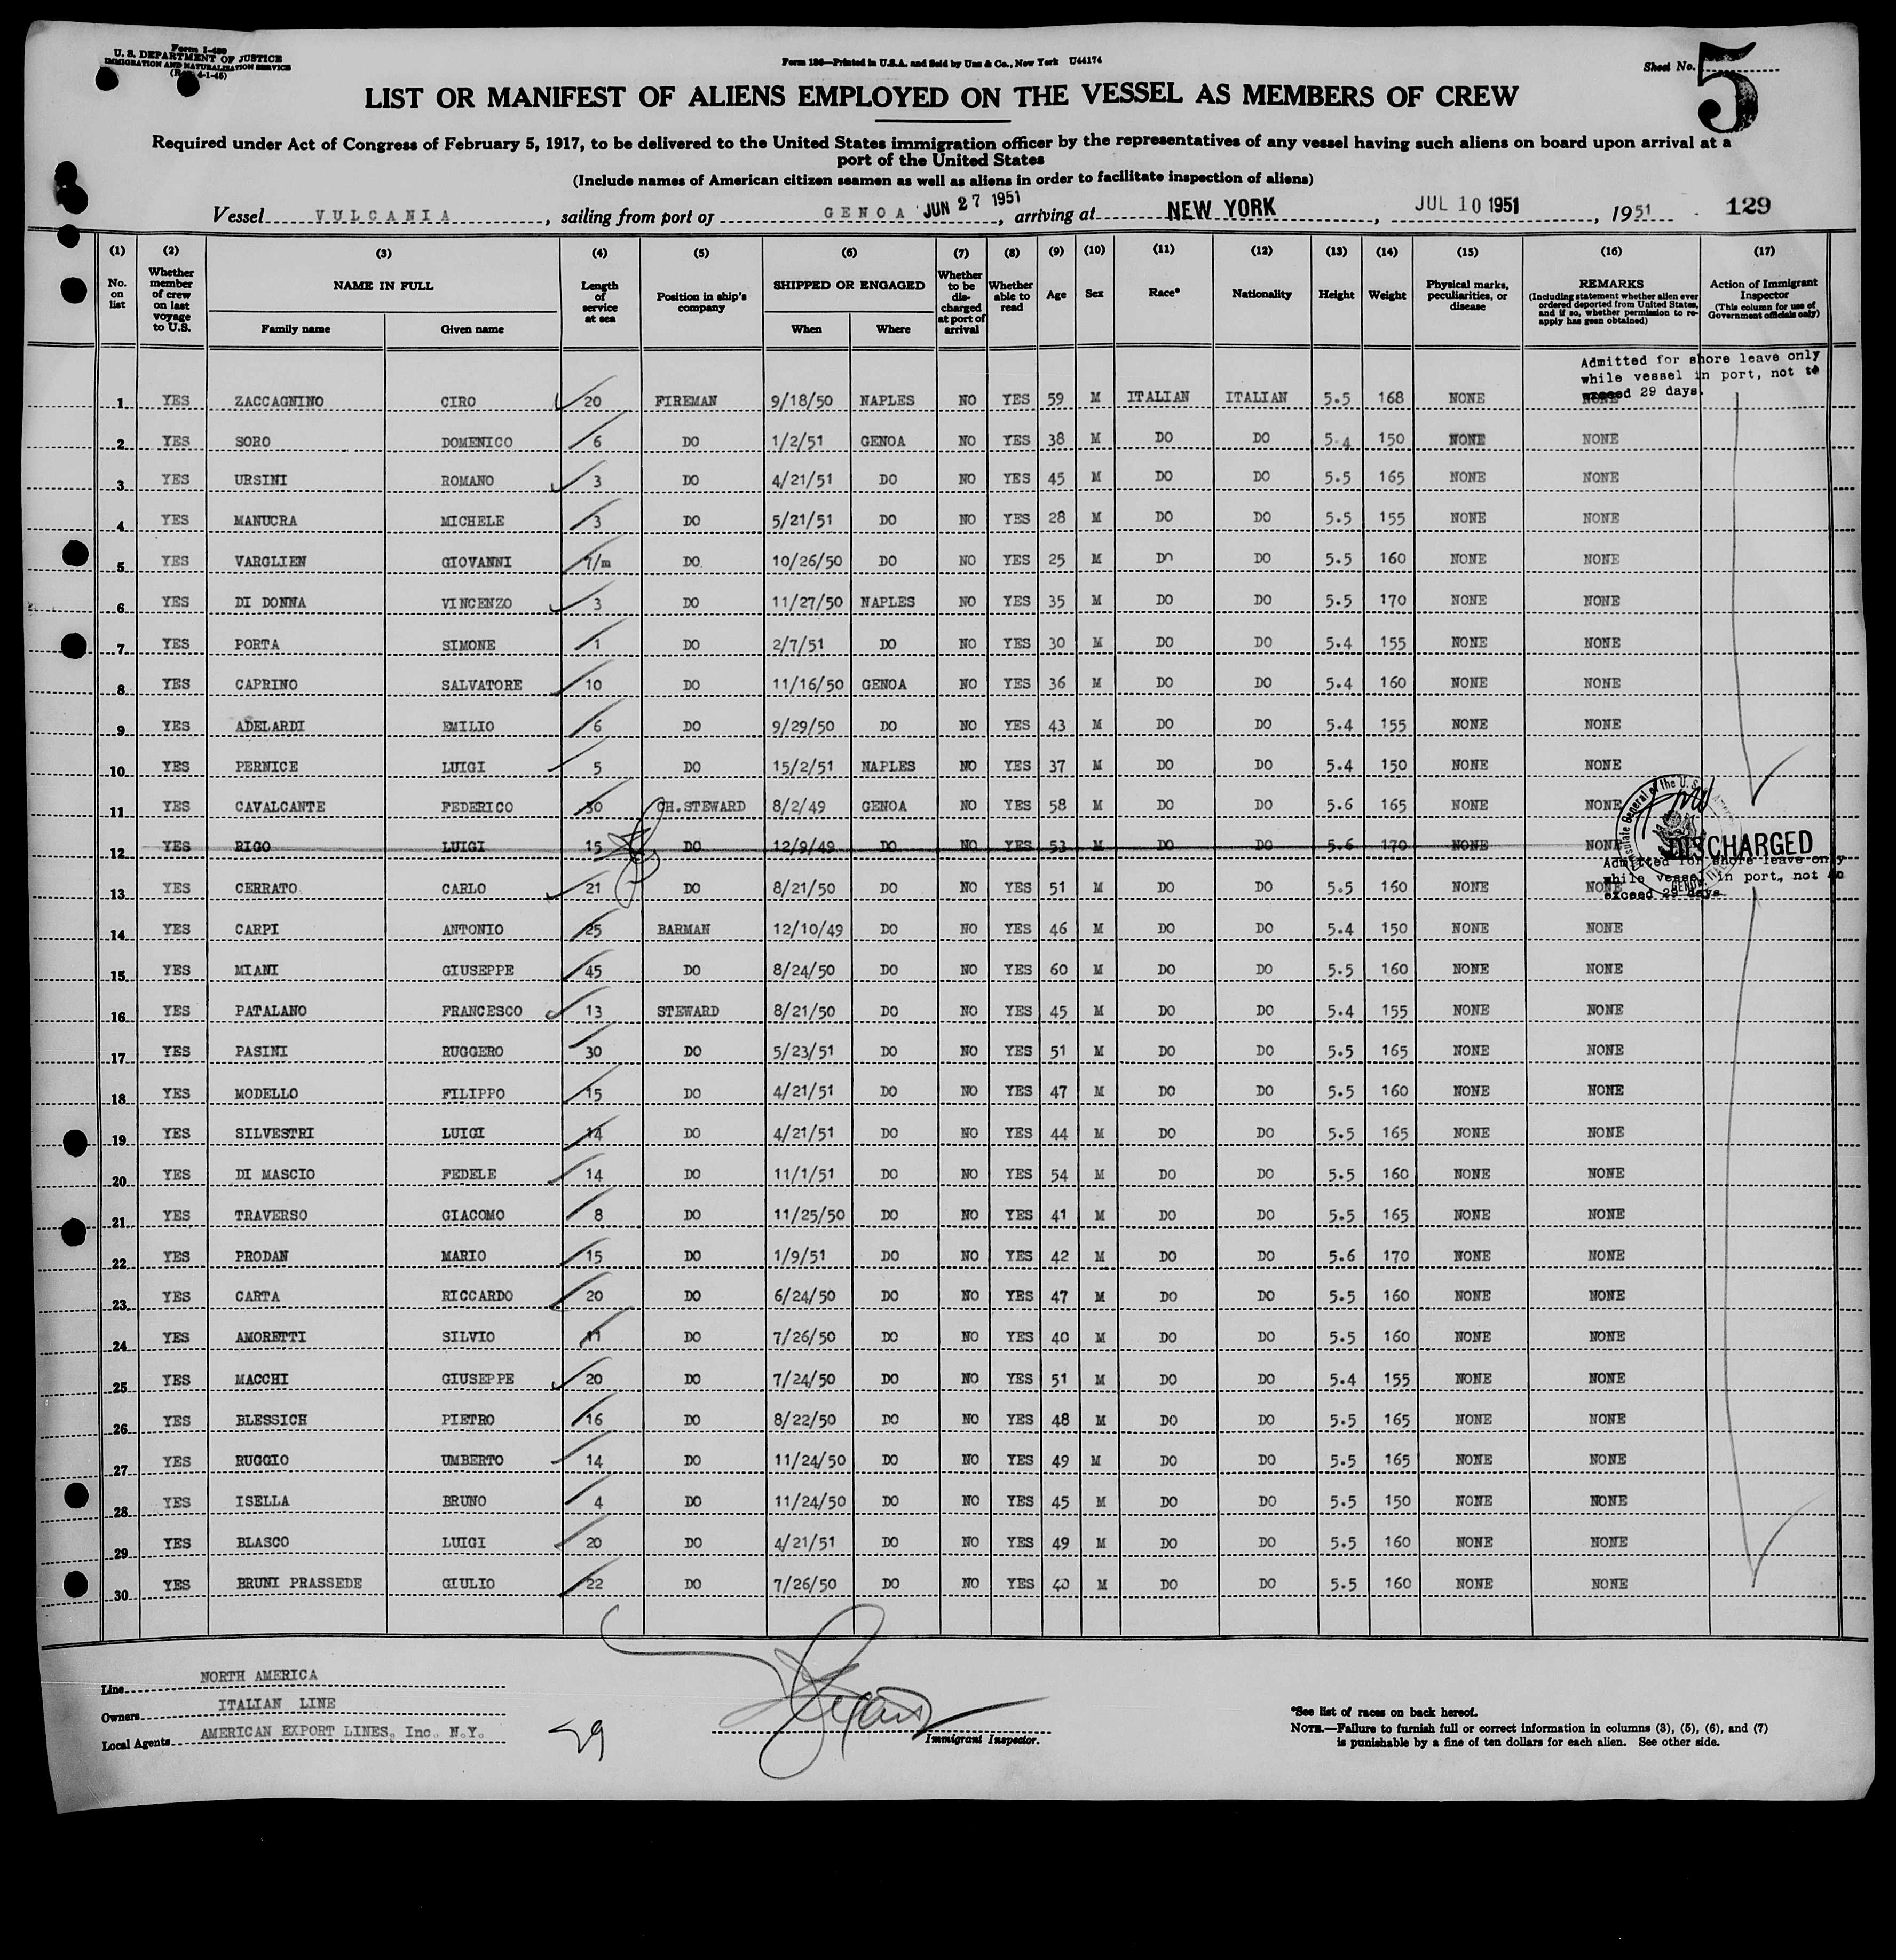 Form I-480
U. S. DEPARTMENT OF JUSTICE
IMMIGRATION AND NATURALIZATION SERVICE
(Rev. 4-1-45)
Form 136—Printed in U.S.A. and Sold by Unz & Co., New York U44174
Sheet No. 5
LIST OR MANIFEST OF ALIENS EMPLOYED ON THE VESSEL AS MEMBERS OF CREW
Required under Act of Congress of February 5, 1917, to be delivered to the United States immigration officer by the representatives of any vessel having such aliens on board upon arrival at a
port of the United States
(Include names of American citizen seamen as well as aliens in order to facilitate inspection of aliens)
Vessel VULCANIA, sailing from port of GENOA JUN 27 1951, arriving at NEW YORK, JUL 10 1951, 1951 129
(1) (2) (3) (4) (5) (6) (7) (8) (9) (10) (11) (12) (13) (14) (15) (16) (17)
No. on list Whether member of crew on last voyage to U.S. NAME IN FULL Family name Given name Length of service at sea Position in ship's company SHIPPED OR ENGAGED When Where Whether to be discharged at port of arrival Whether able to read Age Sex Race* Nationality Height Weight Physical marks, peculiarities, or disease REMARKS (Including statement whether alien ever ordered deported from United States, and if so, whether permission to reapply has been obtained) Action of Immigrant Inspector (This column for use of Government officials only)
Admitted for shore leave only
while vessel in port, not to
exceed 29 days.
1 YES ZACCAGNINO CIRO 20 FIREMAN 9/18/50 NAPLES NO YES 59 M ITALIAN ITALIAN 5.5 168 NONE NONE
2 YES SORO DOMENICO 6 DO 1/2/51 GENOA NO YES 38 M DO DO 5.4 150 NONE NONE
3 YES URSINI ROMANO 3 DO 4/21/51 DO NO YES 45 M DO DO 5.5 165 NONE NONE
4 YES MANUCRA MICHELE 3 DO 5/21/51 DO NO YES 28 M DO DO 5.5 155 NONE NONE
5 YES VARGLIEN GIOVANNI 7/m DO 10/26/50 DO NO YES 25 M DO DO 5.5 160 NONE NONE
6 YES DI DONNA VINCENZO 3 DO 11/27/50 NAPLES NO YES 35 M DO DO 5.5 170 NONE NONE
7 YES PORTA SIMONE 1 DO 2/7/51 DO NO YES 30 M DO DO 5.4 155 NONE NONE
8 YES CAPRINO SALVATORE 10 DO 11/16/50 GENOA NO YES 36 M DO DO 5.4 160 NONE NONE
9 YES ADELARDI EMILIO 6 DO 9/29/50 DO NO YES 43 M DO DO 5.4 155 NONE NONE
10 YES PERNICE LUIGI 5 DO 15/2/51 NAPLES NO YES 37 M DO DO 5.4 150 NONE NONE
11 YES CAVALCANTE FEDERICO 30 CH.STEWARD 8/2/49 GENOA NO YES 58 M DO DO 5.6 165 NONE NONE
12 YES RIGO LUIGI 15 DO 12/9/49 DO NO YES 53 M DO DO 5.6 170 NONE NONE DISCHARGED
Admitted for shore leave only
while vessel in port, not to
exceed 29 days
13 YES CERRATO CARLO 21 DO 8/21/50 DO NO YES 51 M DO DO 5.5 160 NONE NONE
14 YES CARPI ANTONIO 25 BARMAN 12/10/49 DO NO YES 46 M DO DO 5.4 150 NONE NONE
15 YES MIANI GIUSEPPE 45 DO 8/24/50 DO NO YES 60 M DO DO 5.5 160 NONE NONE
16 YES PATALANO FRANCESCO 13 STEWARD 8/21/50 DO NO YES 45 M DO DO 5.4 155 NONE NONE
17 YES PASINI RUGGERO 30 DO 5/23/51 DO NO YES 51 M DO DO 5.5 165 NONE NONE
18 YES MODELLO FILIPPO 15 DO 4/21/51 DO NO YES 47 M DO DO 5.5 160 NONE NONE
19 YES SILVESTRI LUIGI 14 DO 4/21/51 DO NO YES 44 M DO DO 5.5 165 NONE NONE
20 YES DI MASCIO FEDELE 14 DO 11/1/51 DO NO YES 54 M DO DO 5.5 160 NONE NONE
21 YES TRAVERSO GIACOMO 8 DO 11/25/50 DO NO YES 41 M DO DO 5.5 165 NONE NONE
22 YES PRODAN MARIO 15 DO 1/9/51 DO NO YES 42 M DO DO 5.6 170 NONE NONE
23 YES CARTA RICCARDO 20 DO 6/24/50 DO NO YES 47 M DO DO 5.5 160 NONE NONE
24 YES AMORETTI SILVIO 11 DO 7/26/50 DO NO YES 40 M DO DO 5.5 160 NONE NONE
25 YES MACCHI GIUSEPPE 20 DO 7/24/50 DO NO YES 51 M DO DO 5.4 155 NONE NONE
26 YES BLESSICH PIETRO 16 DO 8/22/50 DO NO YES 48 M DO DO 5.5 165 NONE NONE
27 YES RUGGIO UMBERTO 14 DO 11/24/50 DO NO YES 49 M DO DO 5.5 165 NONE NONE
28 YES ISELLA BRUNO 4 DO 11/24/50 DO NO YES 45 M DO DO 5.5 150 NONE NONE
29 YES BLASCO LUIGI 20 DO 4/21/51 DO NO YES 49 M DO DO 5.5 160 NONE NONE
30 YES BRUNI PRASSEDE GIULIO 22 DO 7/26/50 DO NO YES 40 M DO DO 5.5 160 NONE NONE
Line NORTH AMERICA
Owners ITALIAN LINE
Local Agents AMERICAN EXPORT LINES, Inc. N.Y.
29
Immigrant Inspector.
*See list of races on back hereof.
NOTE.—Failure to furnish full or correct information in columns (3), (5), (6), and (7)
is punishable by a fine of ten dollars for each alien. See other side.